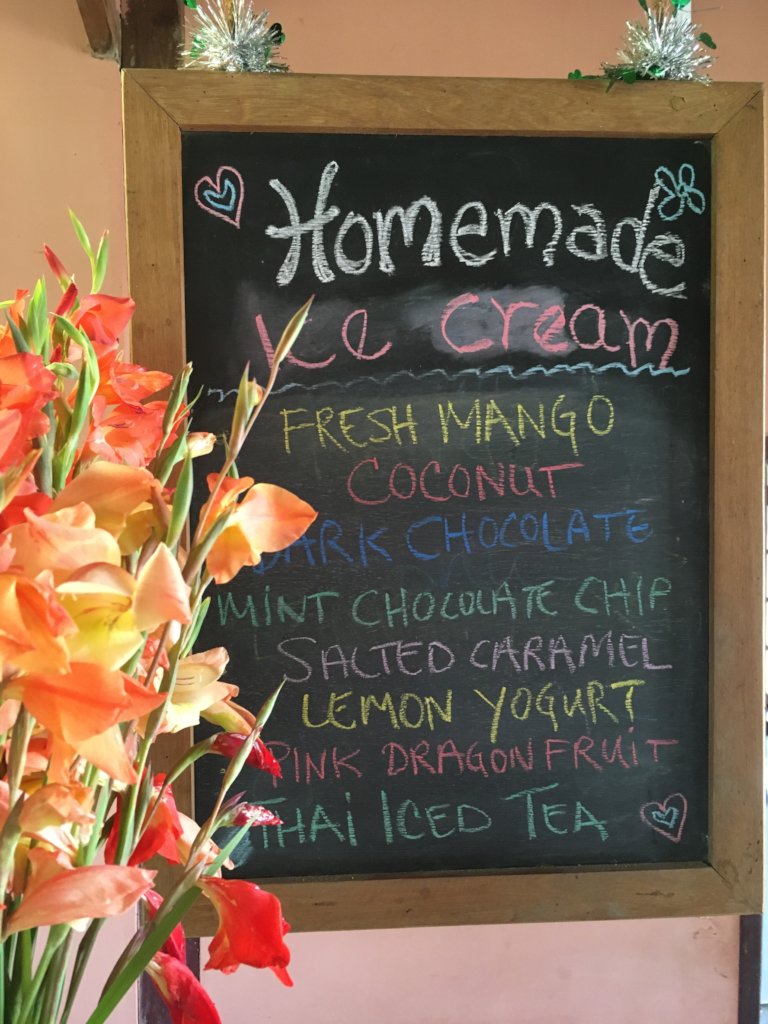 Homemade
Ice Cream
FRESH MANGO
COCONUT
DARK CHOCOLATE
MINT CHOCOLATE CHIP
SALTED CARAMEL
LEMON YOGURT
PINK DRAGONFRUiT
THAi ICED TEA